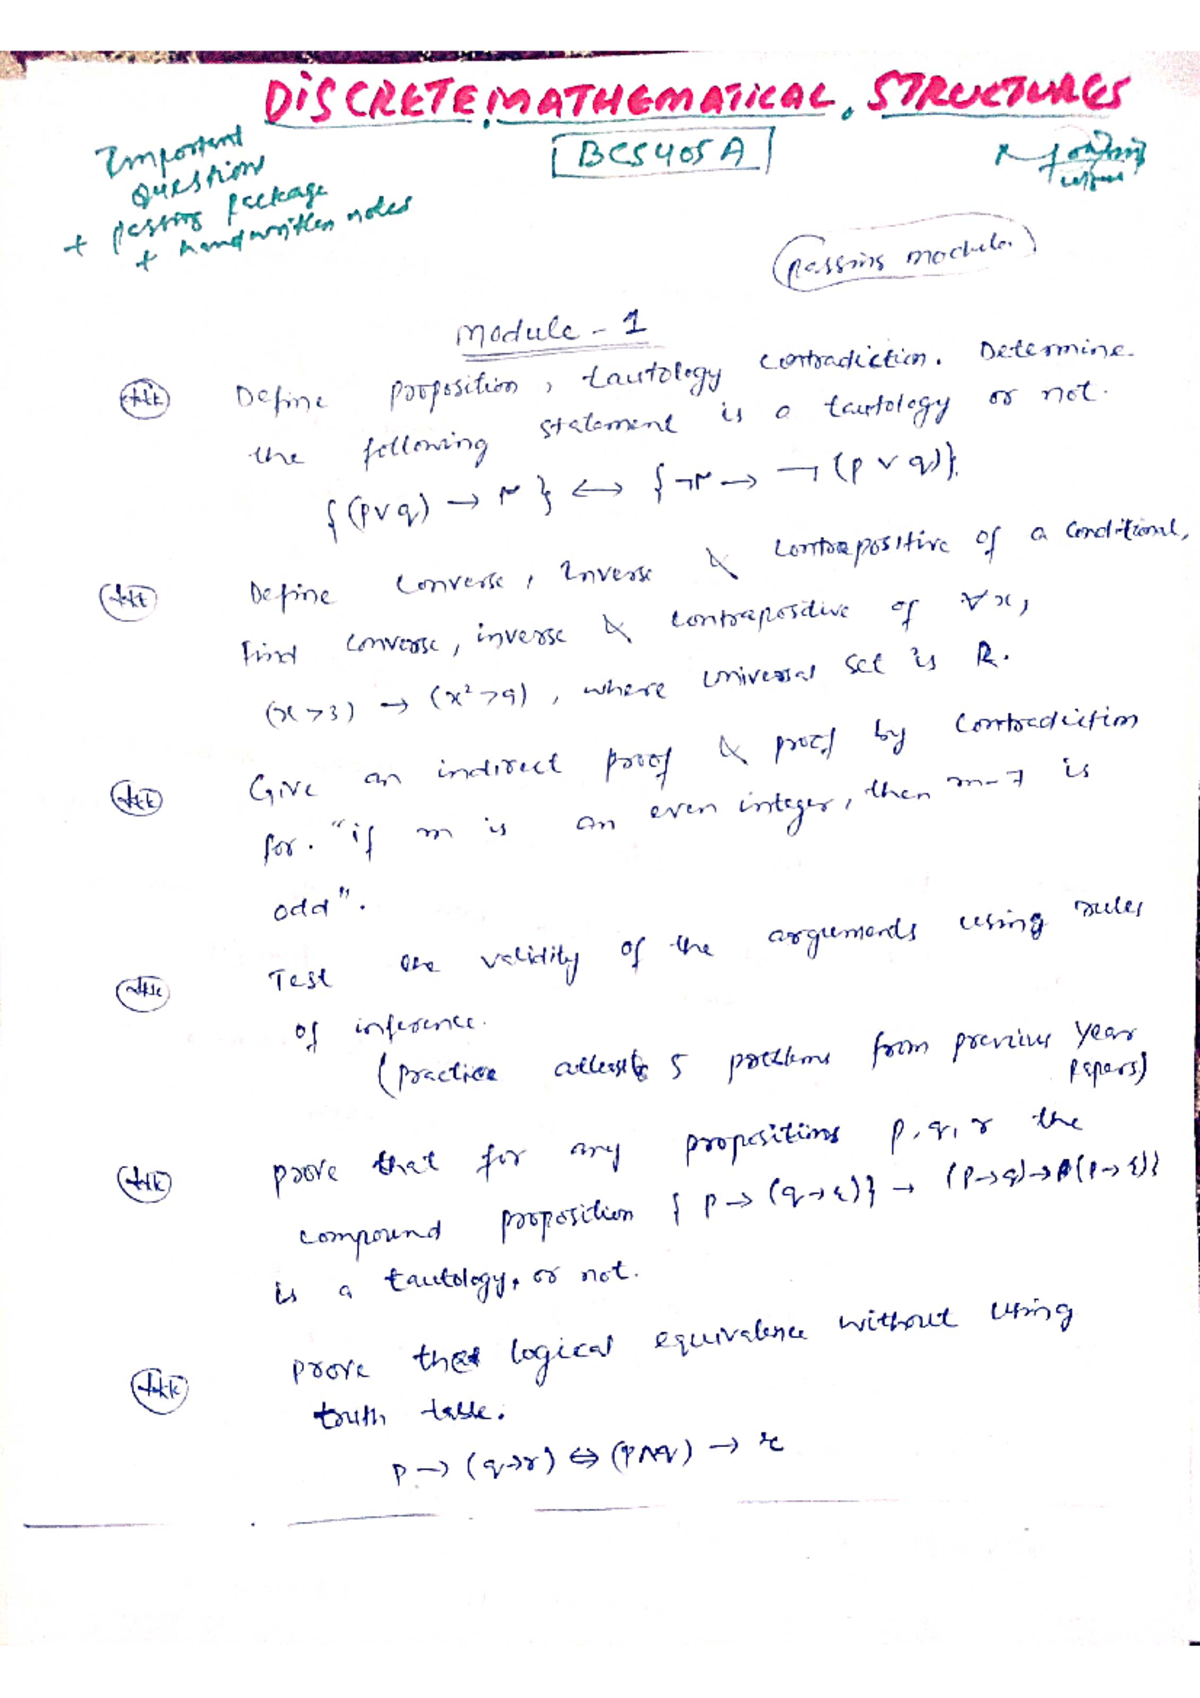 DISCRETE MATHEMATICAL STRUCTURES
BCS405A
Important
question
+ passing package
+ handwritten notes
(passing module)
Module - 1
Define proposition, tautology contradiction. Determine
the following statement is a tautology or not.
{(p∨q) → r} ↔ {¬r → ¬(p ∨ q)}.
Define converse, Inverse & contrapositive of a conditional,
find converse, inverse & contrapositive of ∀x,
(x>3) → (x²>9), where universal set is R.
Give an indirect proof & proof by contradiction
for. "if m is an even integer, then m-7 is
odd".
Test the validity of the arguments using rules
of inference.
(practice atleast 5 problems from previous year
papers)
prove that for any propositions p, q, r the
compound proposition { p → (q→r)} → {(p→q)→(p→r)}
is a tautology, or not.
prove that logical equivalence without using
truth table.
p → (q→r) ⇔ (p∧q) → r